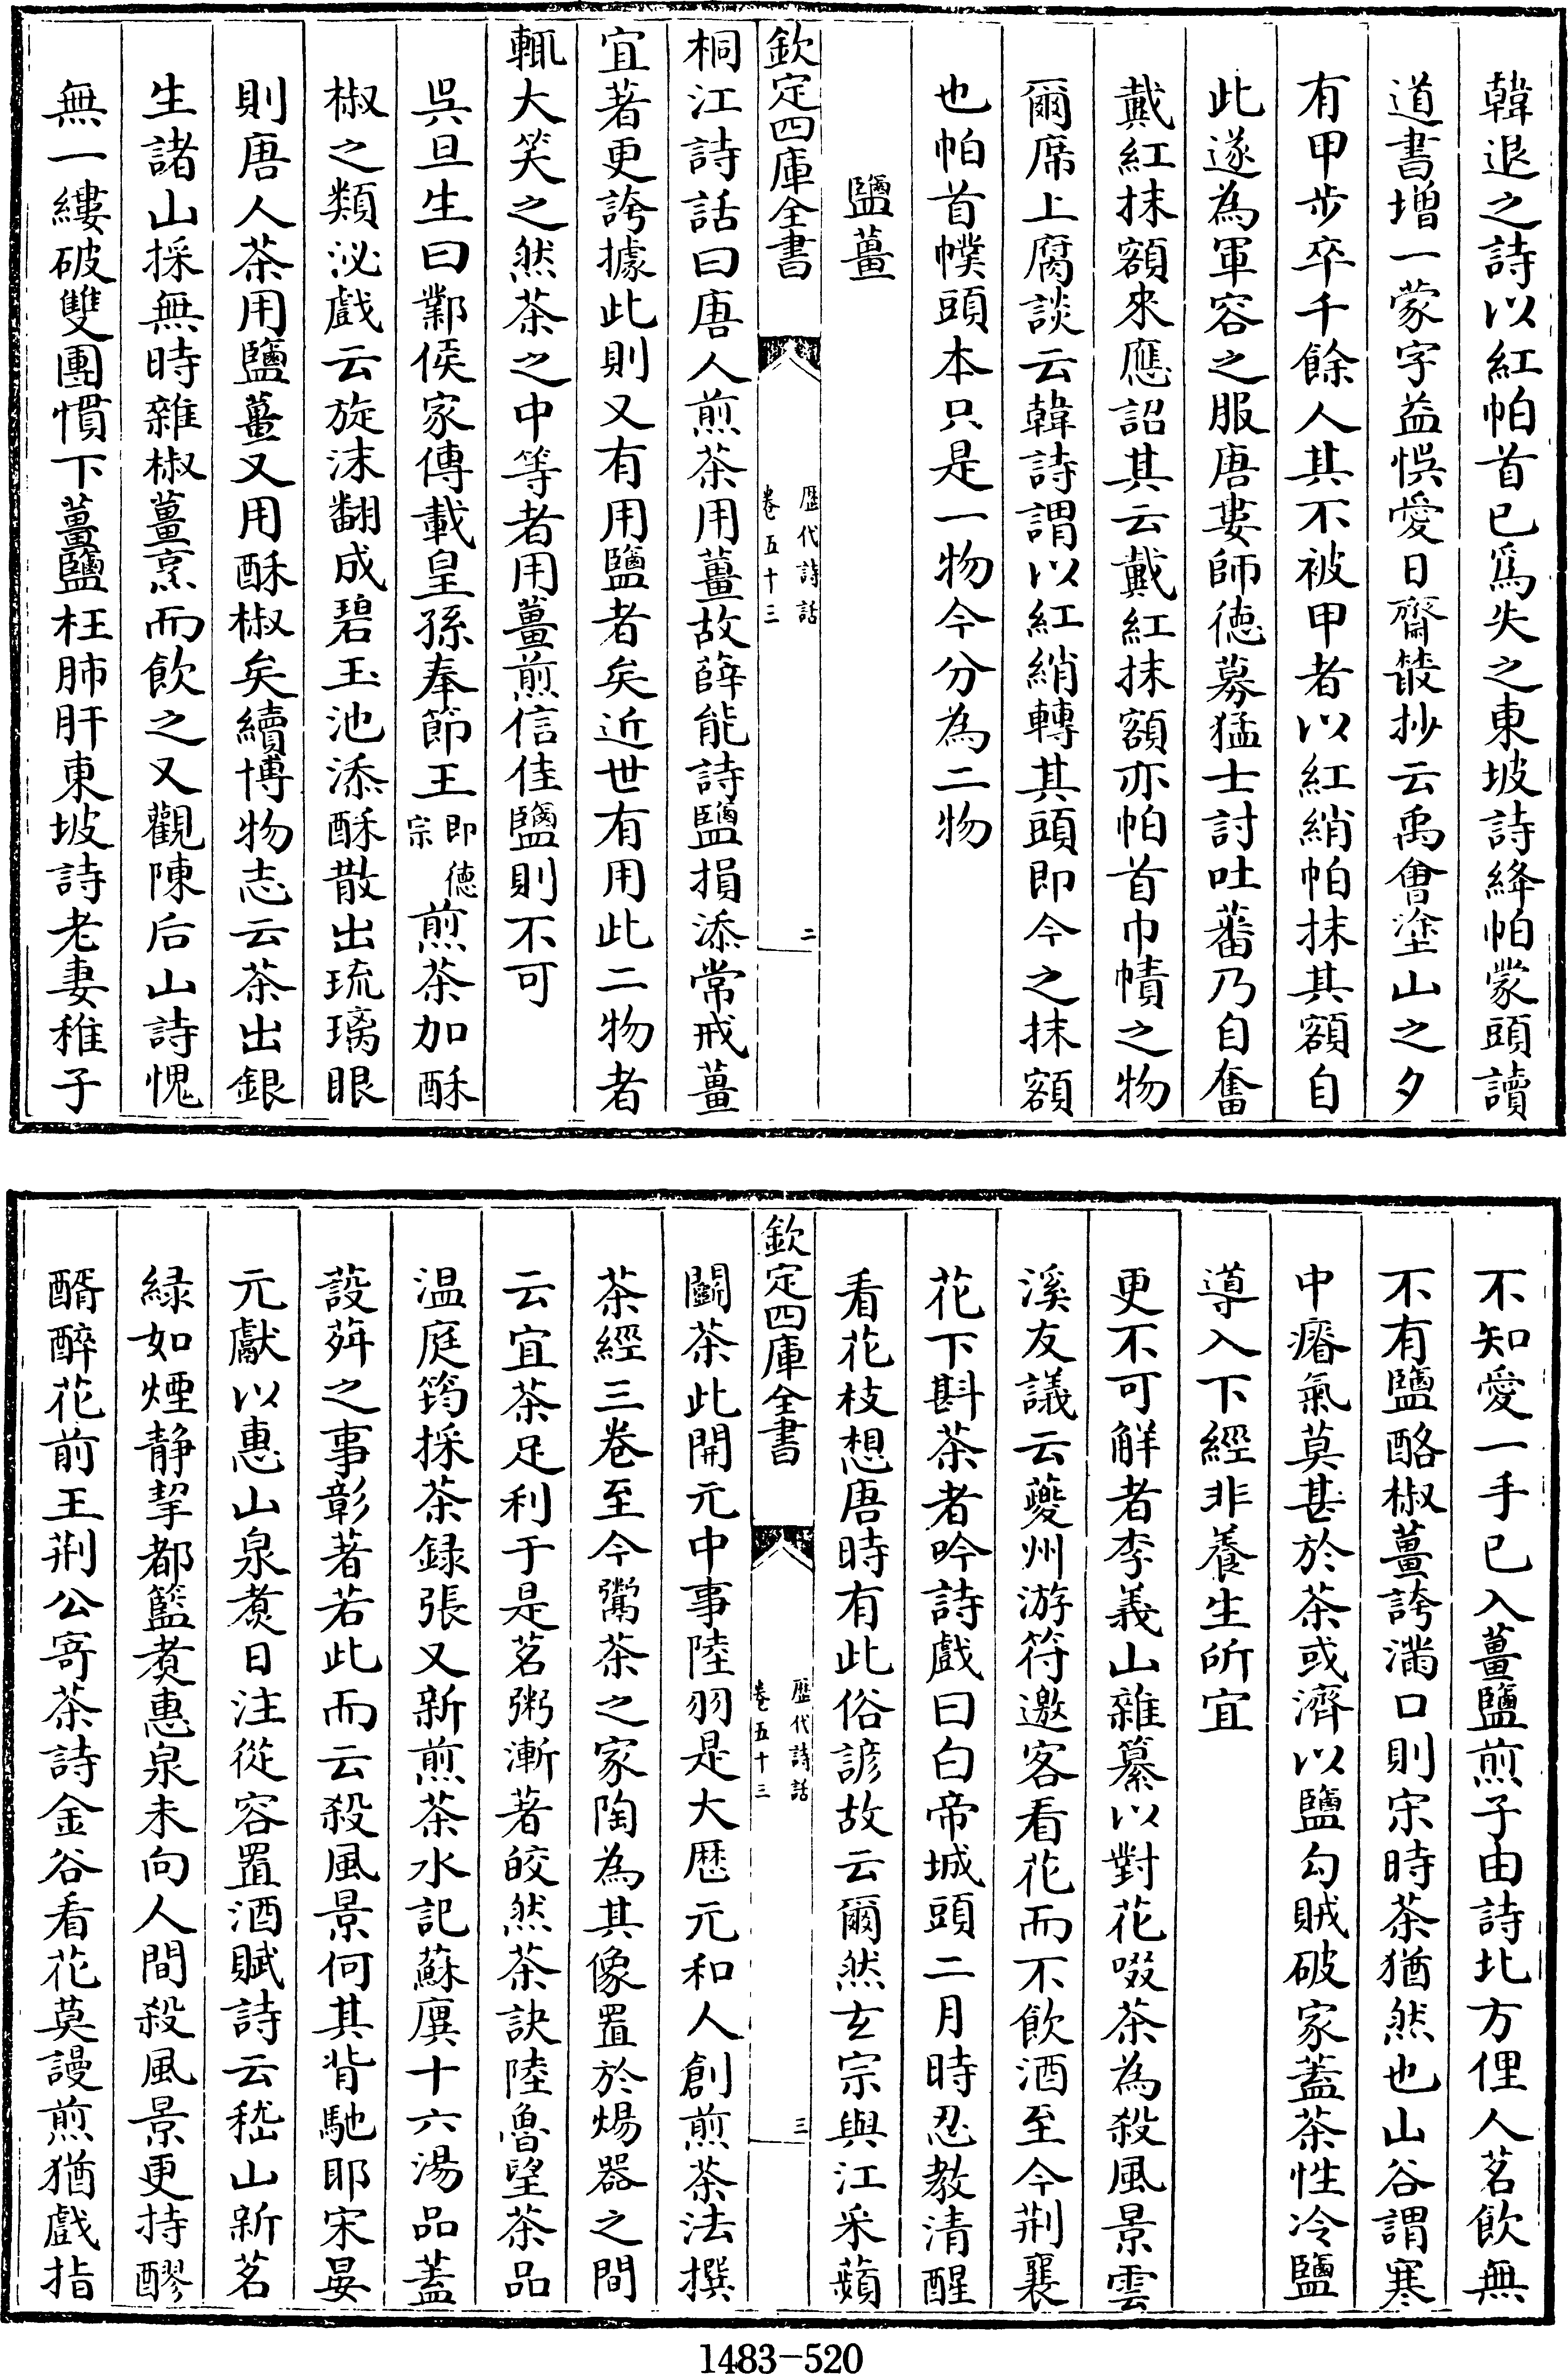 韓退之詩以紅帕首已爲失之東坡詩絳帕蒙頭讀
道書增一蒙字益悞愛日齋叢抄云禹會塗山之夕
有甲步卒千餘人其不被甲者以紅綃帕抹其額自
此遂為軍容之服唐婁師德募猛士討吐蕃乃自奮
戴紅抹額來應詔其云戴紅抹額亦帕首巾幘之物
爾席上腐談云韓詩謂以紅綃轉其頭即今之抹額
也帕首幞頭本只是一物今分為二物
鹽薑
欽定四庫全書
歴代詩話
卷五十三
二
桐江詩話曰唐人煎茶用薑故薛能詩鹽損添常戒薑
宜著更誇據此則又有用鹽者矣近世有用此二物者
輒大笑之然茶之中等者用薑煎信佳鹽則不可
吳旦生曰鄴侯家傳載皇孫奉節王即德宗煎茶加酥
椒之類泌戲云旋沫翻成碧玉池添酥散出琉璃眼
則唐人茶用鹽薑又用酥椒矣續博物志云茶出銀
生諸山採無時雜椒薑烹而飲之又觀陳后山詩愧
無一縷破雙團慣下薑鹽枉肺肝東坡詩老妻稚子
不知愛一手已入薑鹽煎子由詩北方俚人茗飲無
不有鹽酪椒薑誇滿口則宋時茶猶然也山谷謂寒
中瘠氣莫甚於茶或濟以鹽勾賊破家蓋茶性冷鹽
導入下經非養生所宜
更不可解者李義山雜纂以對花啜茶為殺風景雲
溪友議云夔州游符邀客看花而不飲酒至今荆襄
花下斟茶者吟詩戲曰白帝城頭二月時忍教清醒
看花枝想唐時有此俗諺故云爾然玄宗與江采蘋
欽定四庫全書
歴代詩話
卷五十三
三
鬬茶此開元中事陸羽是大厯元和人創煎茶法撰
茶經三卷至今鬻茶之家陶為其像置於煬器之間
云宜茶足利于是茗粥漸著皎然茶訣陸魯望茶品
温庭筠採茶録張又新煎茶水記蘇廙十六湯品蓋
蔎荈之事彰著若此而云殺風景何其背馳耶宋晏
元獻以惠山泉煑日注從容置酒賦詩云嵇山新茗
緑如煙静挈都籃煑惠泉未向人間殺風景更持醪
醑醉花前王荆公寄茶詩金谷看花莫謾煎猶戲指
1483-520